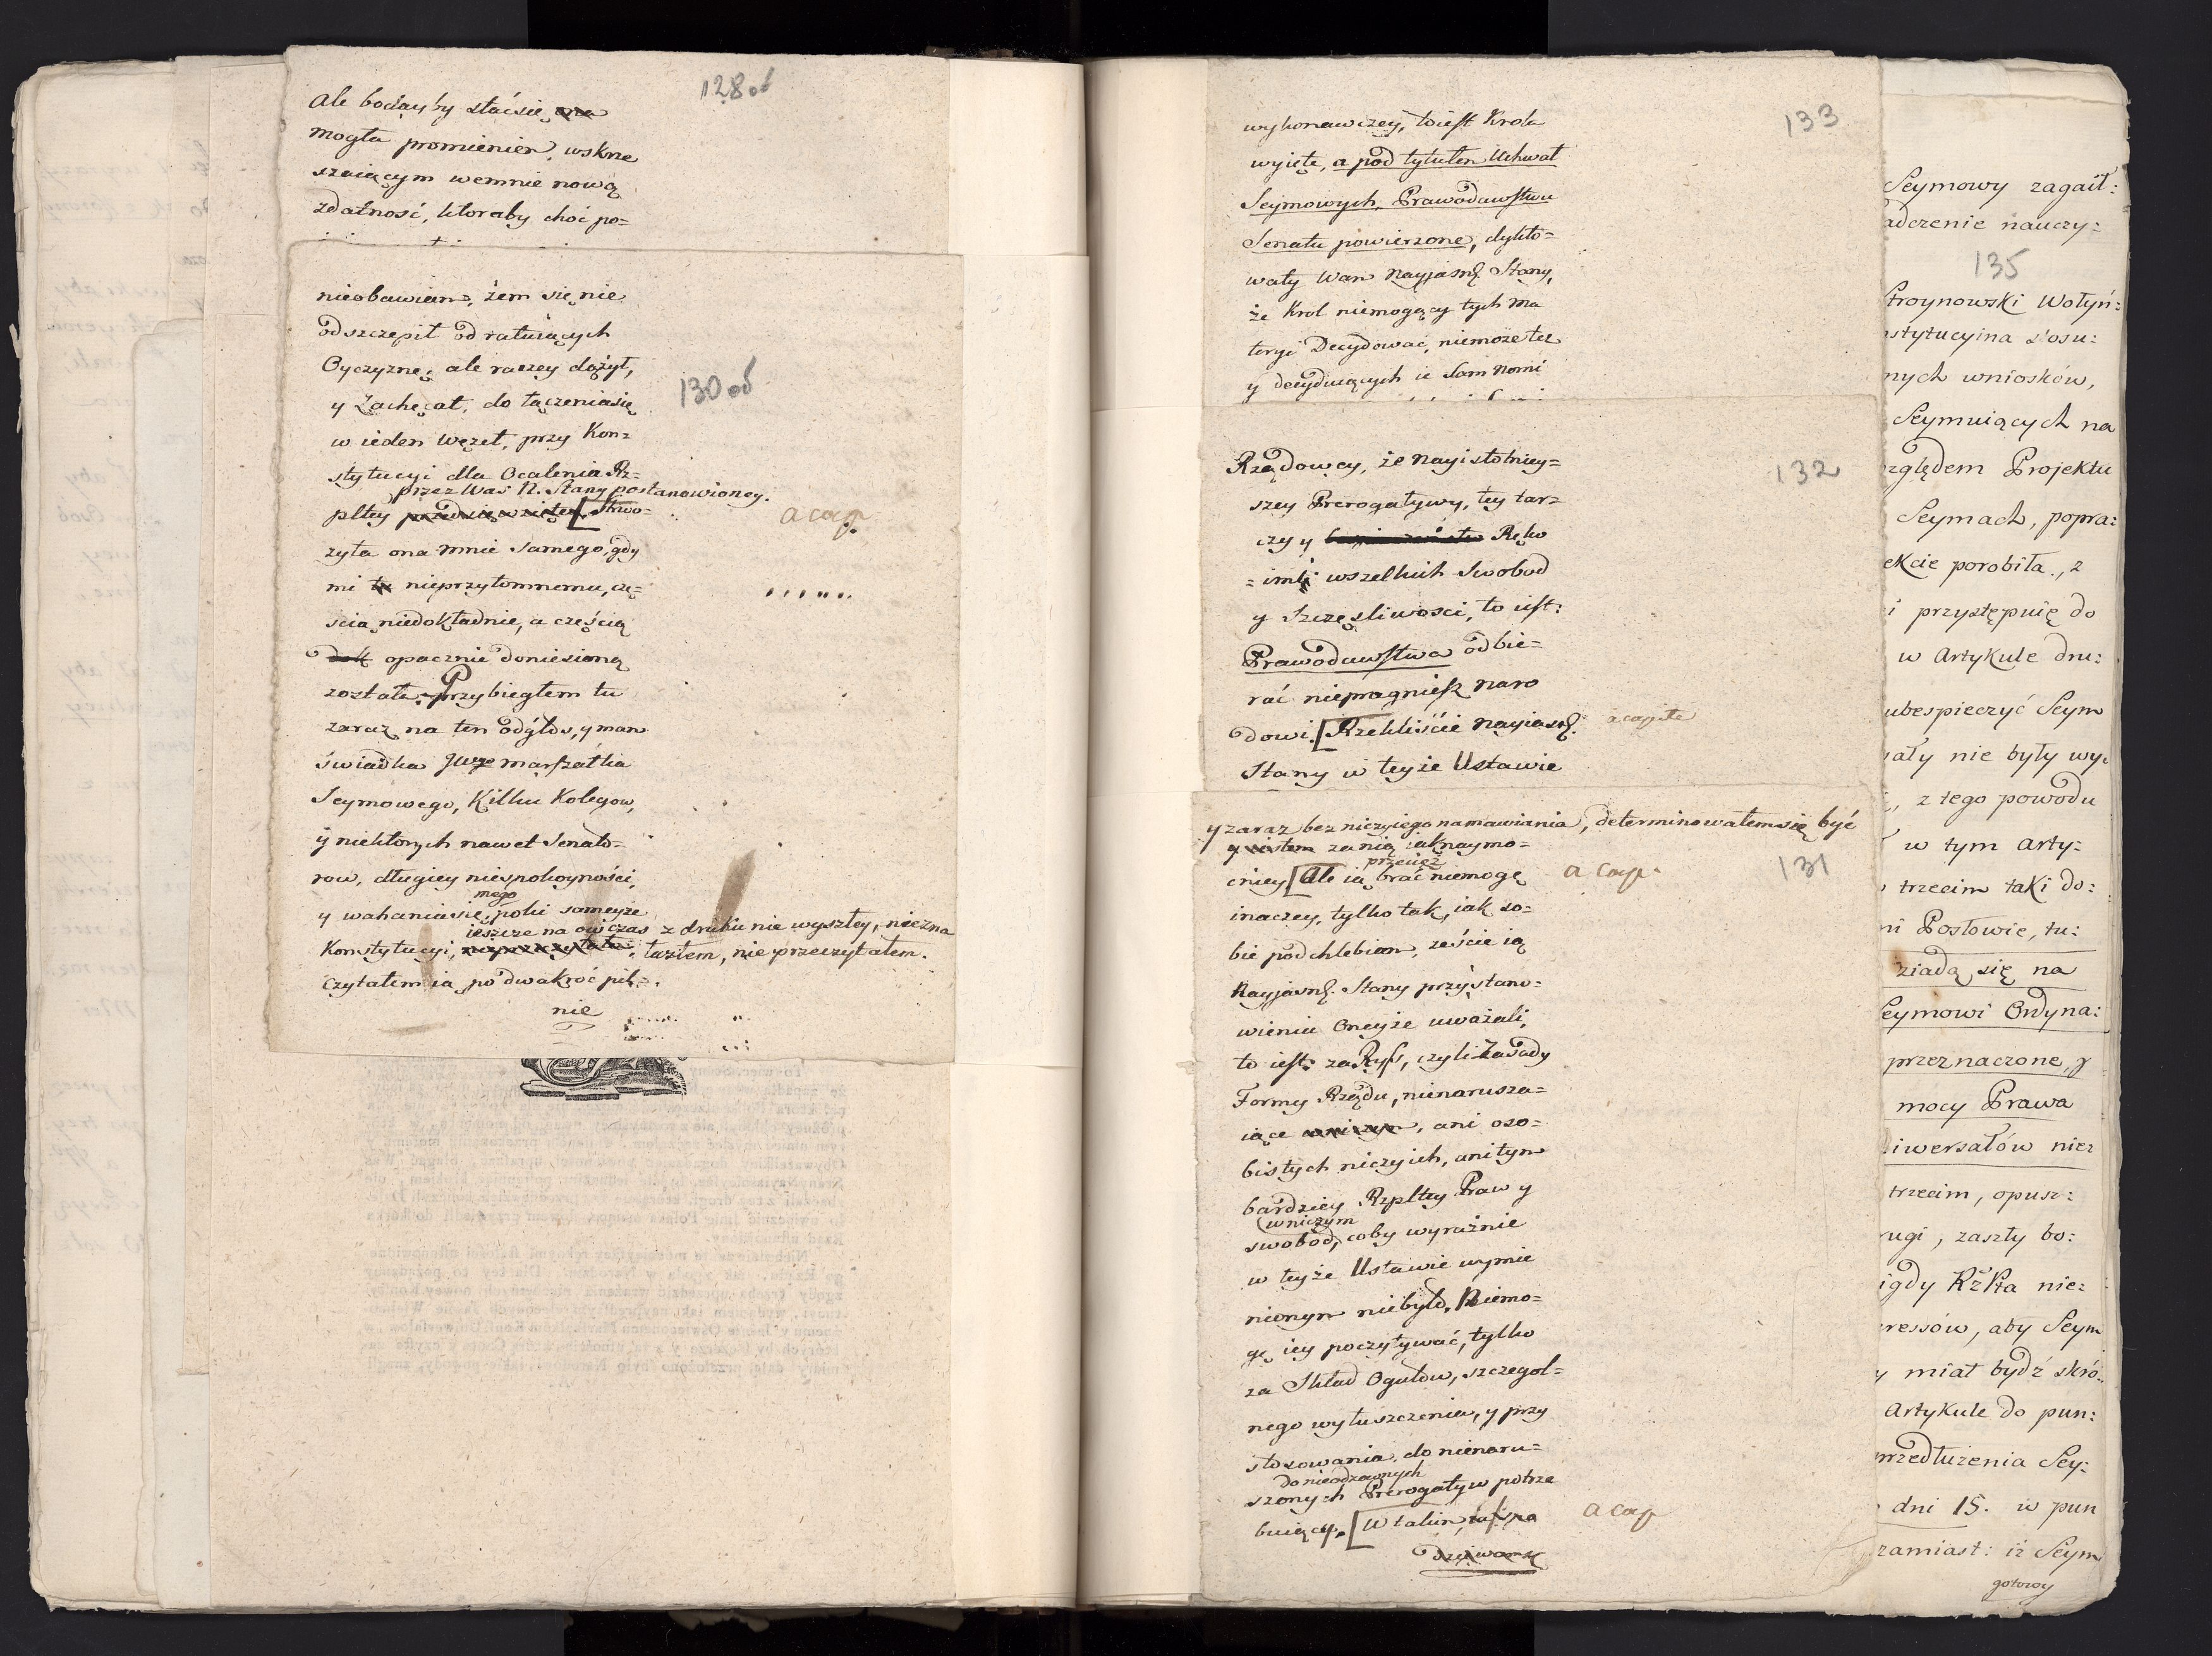 128 ob
Ale bodayby stać się ona
mogła promieniem, wskrze
szaiącym wemnie nową
zdatność, ktoraby choć po=
nieobawiam, żem się nie
odszczepił od ratuiących
Oyczyznę; ale raczey dążył,
130 ob
y Zachęcał, do łączenia się
w ieden węzeł, przy Kon=
stytucyi dla Ocalenia Rz=
przez Was N. Stany postanowioney.
pltey przedsięwziętey [Stwo=
a cap.
rzyła ona mnie samego, gdy
mi tu nieprzytomnemu, czę=
ścią niedokładnie, a częścią
dok opacznie doniesioną
została. Przybiegłem tu
zaraz na ten odgłos, y mam
świadka JWgo marszałka
Seymowego, Kilku Kolegow,
y niektorych nawet Senato=
row, długiey niespokoyności,
mego
y wahania się, poki sameyże
ieszcze na ów czas z druku nie wyszłey, niezna
Konstytucyi, nieprzeczytałem, lazłem, nie przeczytałem.
Czytałem ią po dwakroć pil=
nie
133
wykonawczey, to iest Krola
wyięte, a pod tytułem Uchwał
Seymowych, Prawodawstwu
Senatu powierzone, dykto=
wały Wam Nayjaśn. Stany,
że Krol niemogący tych ma
teryi Decydować, niemoże też
y decyduiących ie Sam Nomi
Rządowey, że nayistotniey=
132
szey Prerogatywy, tey tar=
czy y Ręko
=imi wszelkich Swobod
y Szczęśliwości, to iest:
Prawodawstwa odbie=
rać niepragniesz naro
dowi. [Rzekliście Nayiaśn.
a capite
Stany w teyże Ustawie
y zaraz bez niczyiego namawiania, determinowałem się być
y iestem za nią iak naymo=
131
przecież
cniey [Ale ią brać niemogę
a cap.
inaczey, tylko tak, iak so=
bie podchlebiam, żeście ią
Nayjaśn. Stany przy stano=
wieniu Oneyże uważali,
to iest: za Ryss, czyli Zasady
Formy Rządu, nienarusza=
iące wniczym, ani oso=
bistych niczyich, ani tym
bardziey Rzpltey Praw y
wniczym
swobod, coby wyraźnie
w teyże Ustawie wymie
nionym niebyło. Niemo=
gę iey poczytywać, tylko
za Skład Ogułow, szczegol=
nego wyłuszczenia, y przy
stosowania do nienaru=
do nieodzownych
szonych Prerogatyw potrze
buiący. [W takim, iest na
a cap
Seymowy zagaił:
adczenie nauczy=
135
troynowski Wołyń:
stytucyina stosu:
nych wniosków,
Seymuiących na
zględem Projektu
Seymach, popra:
ekcie porobiła, z
i przystępuię do
w Artykule dru:
ubespieczyć Seym
ały nie były wy:
, z tego powodu
w tym Arty:
trzecim taki do:
ni Posłowie, tu:
ziadą się na
Seymowi Ordyna:
przeznaczone, y
mocy Prawa
iwersałów nie:
trzecim, opusz:
ugi, zaszły bo:
igdy RżPta nie:
ressów, aby Seym
y miał bydź skró:
Artykule do pun:
rzedłużenia Sey:
dni 15. w pun
zamiast: iż Seym
gotowy